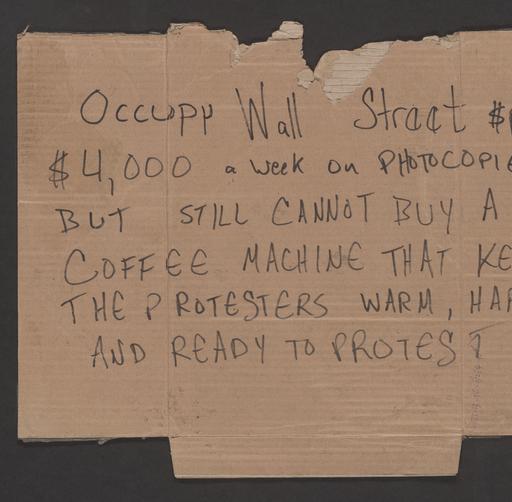 Occupy Wall Street $
$4,000 a week on PHOTOCOPIE
BUT STILL CANNOT BUY A
COFFEE MACHINE THAT KE
THE PROTESTERS WARM, HAP
AND READY TO PROTEST